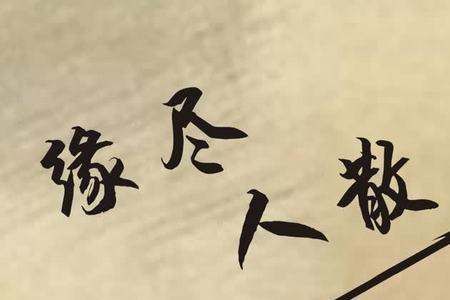 缘尽人散